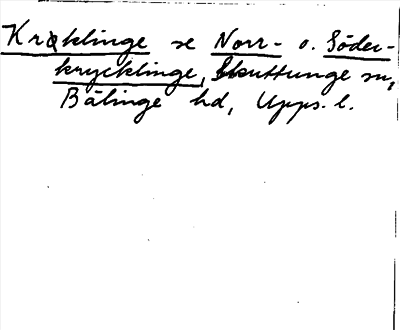 Kräklinge se Norr- o. Söder-
krycklinge, Skuttunge sn,
Bälinge hd, Upps. l.